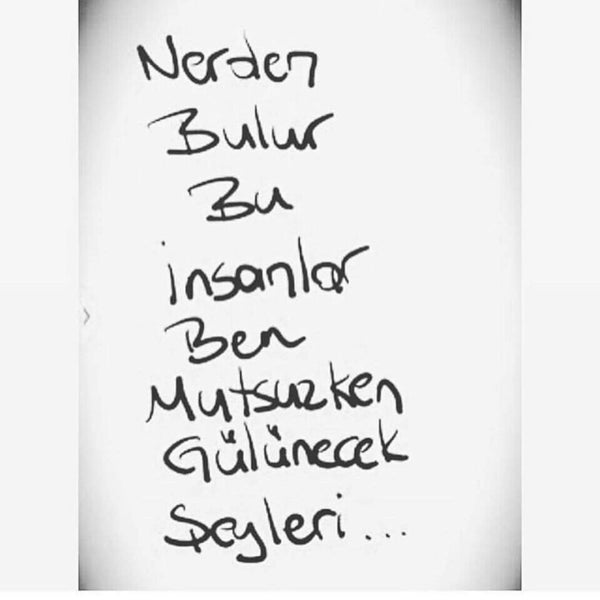 Nerden
Bulur
Bu
insanlar
Ben
Mutsuzken
Gülünecek
Şeyleri...